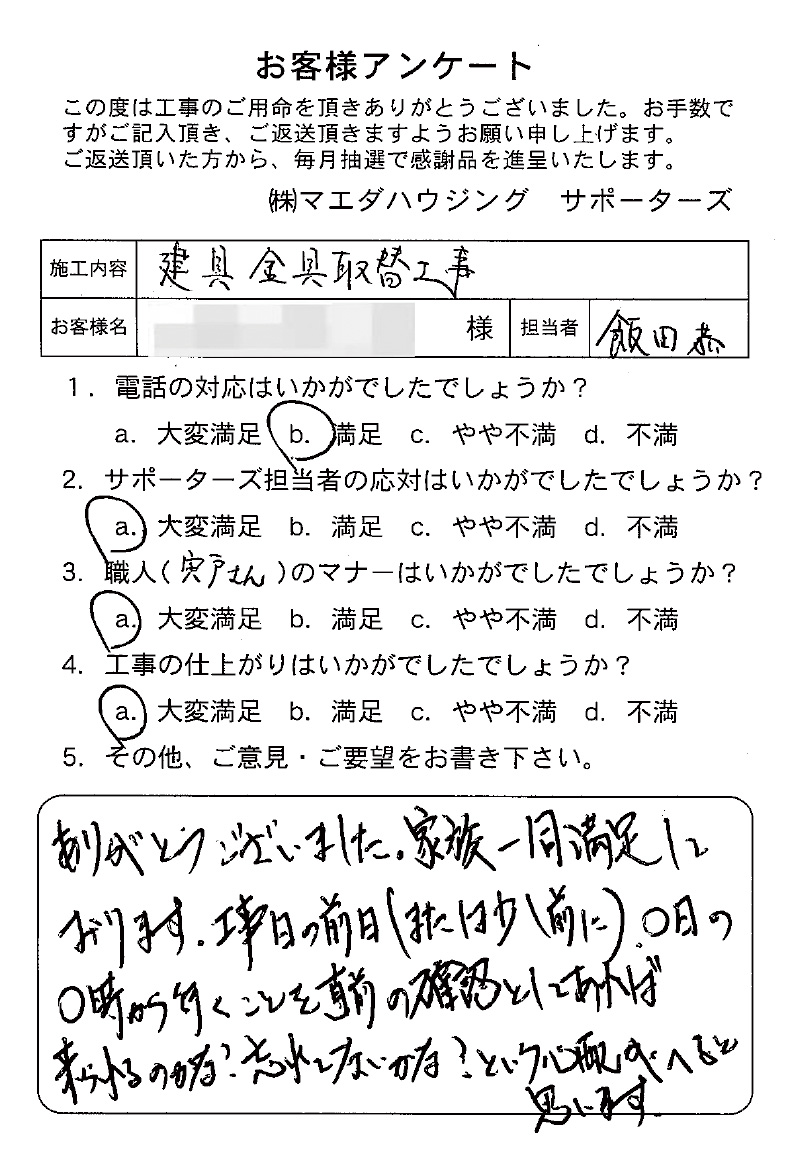 お客様アンケート
この度は工事のご用命を頂きありがとうございました。お手数で
すがご記入頂き、ご返送頂きますようお願い申し上げます。
ご返送頂いた方から、毎月抽選で感謝品を進呈いたします。
㈱マエダハウジング サポーターズ
施工内容 建具金具取替工事
お客様名 様 担当者 飯田恭
1. 電話の対応はいかがでしたでしょうか?
a. 大変満足 b. 満足 c. やや不満 d. 不満
2. サポーターズ担当者の応対はいかがでしたでしょうか?
a. 大変満足 b. 満足 c. やや不満 d. 不満
3. 職人(宍戸さん)のマナーはいかがでしたでしょうか?
a. 大変満足 b. 満足 c. やや不満 d. 不満
4. 工事の仕上がりはいかがでしたでしょうか?
a. 大変満足 b. 満足 c. やや不満 d. 不満
5. その他、ご意見・ご要望をお書き下さい。
ありがとうございました。家族一同満足して
おります。工事日の前日(または少し前に)〇日の
〇時から行くことを事前の確認としてあれば
来られるのかな?忘れてないかな?という心配がへると
思います。